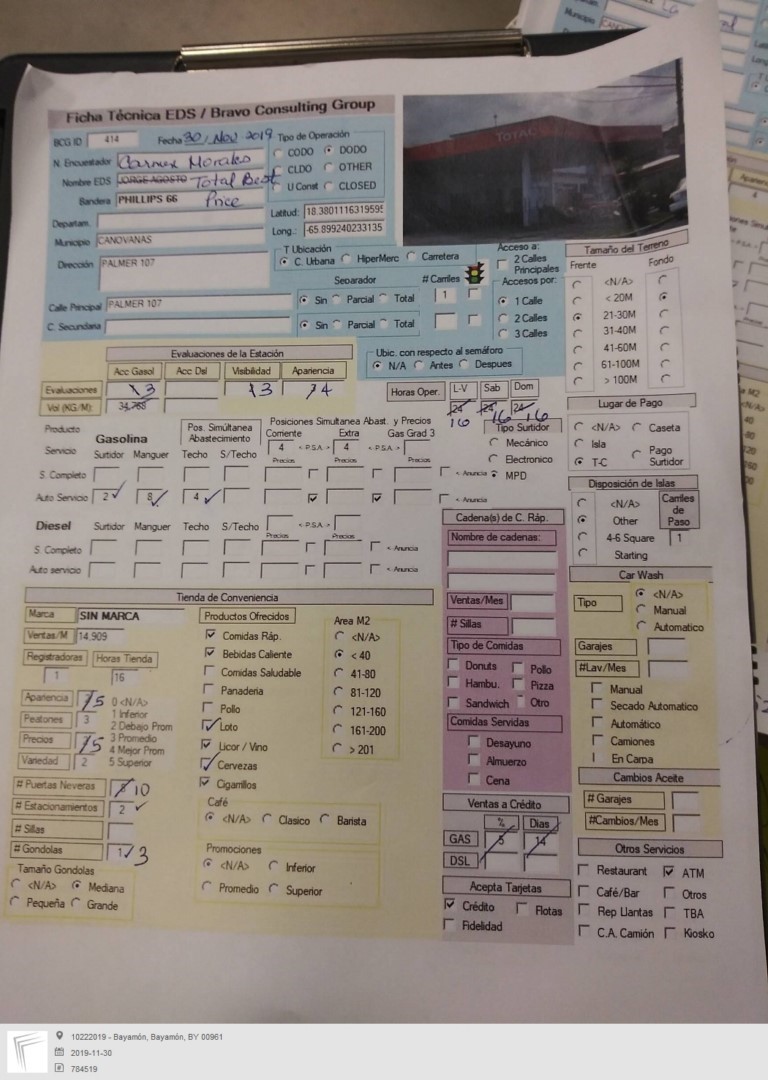 Ficha Técnica EDS / Bravo Consulting Group
BCG ID 414 Fecha 30/Nov 2019 Tipo de Operación
CODO DODO
N. Encuestador Carmen Morales CLDO OTHER
Nombre EDS JORGE AGOSTO Total Best Price U Const CLOSED
Bandera PHILLIPS 66
Latitud: 18.3801116319595
Departam. Long.: -65.899240233135
Municipio CANOVANAS
T Ubicación
C. Urbana HiperMerc Carretera
Dirección PALMER 107
Separador # Carriles
Calle Principal PALMER 107 Sin Parcial Total 1
C. Secundaria Sin Parcial Total
TOTAL
Acceso a:
2 Calles Principales
Accesos por:
1 Calle
2 Calles
3 Calles
Tamaño del Terreno
Frente Fondo
<N/A>
< 20M
21-30M
31-40M
41-60M
61-100M
> 100M
Evaluaciones de la Estación
Acc Gasol Acc Dsl Visibilidad Apariencia
Evaluaciones 3 3 4
Vol (KG/M): 34,768
Ubic. con respecto al semáforo
N/A Antes Despues
Horas Oper. L-V Sab Dom
24 24 24
16 16 16
Lugar de Pago
<N/A> Caseta
Isla Pago Surtidor
T-C
Producto Gasolina Pos. Simúltanea Abastecimiento Posiciones Simultanea Abast. y Precios
Corriente Extra Gas Grad 3
Servicio Surtidor Manguer Techo S/Techo 4 < P.S.A. > 4 < P.S.A. >
Precios Precios Precios
S. Completo < Anuncia
Auto Servicio 2 8 4 < Anuncia
Tipo Surtidor
Mecánico
Electronico
MPD
Diesel Surtidor Manguer Techo S/Techo < P.S.A. >
Precios Precios
S. Completo < Anuncia
Auto servicio < Anuncia
Disposición de Islas
<N/A>
Other
4-6 Square
Starting
Carriles de Paso
1
Cadena(s) de C. Ráp.
Nombre de cadenas:
Ventas/Mes
# Sillas
Tipo de Comidas
Donuts Pollo
Hambu. Pizza
Sandwich Otro
Comidas Servidas
Desayuno
Almuerzo
Cena
Car Wash
Tipo <N/A>
Manual
Automatico
Garajes
#Lav/Mes
Manual
Secado Automatico
Automático
Camiones
En Carpa
Cambios Aceite
# Garajes
#Cambios/Mes
Tienda de Conveniencia
Marca SIN MARCA
Ventas/M 14,909
Registradoras Horas Tienda
1 16
Apariencia 5 0 <N/A>
Peatones 3 1 Inferior
2 Debajo Prom
Precios 5 3 Promedio
4 Mejor Prom
Variedad 2 5 Superior
# Puertas Neveras 10
# Estacionamientos 2
# Sillas
# Gondolas 1 3
Tamaño Gondolas
<N/A> Mediana
Pequeña Grande
Productos Ofrecidos
Comidas Ráp.
Bebidas Caliente
Comidas Saludable
Panaderia
Pollo
Loto
Licor / Vino
Cervezas
Cigarrillos
Area M2
<N/A>
< 40
41-80
81-120
121-160
161-200
> 201
Café
<N/A> Clasico Barista
Promociones
<N/A> Inferior
Promedio Superior
Ventas a Crédito
% Dias
GAS 5 14
DSL
Acepta Tarjetas
Crédito Flotas
Fidelidad
Otros Servicios
Restaurant ATM
Café/Bar Otros
Rep Llantas TBA
C.A. Camión Kiosko
10222019 - Bayamón, Bayamón, BY 00961
2019-11-30
784519